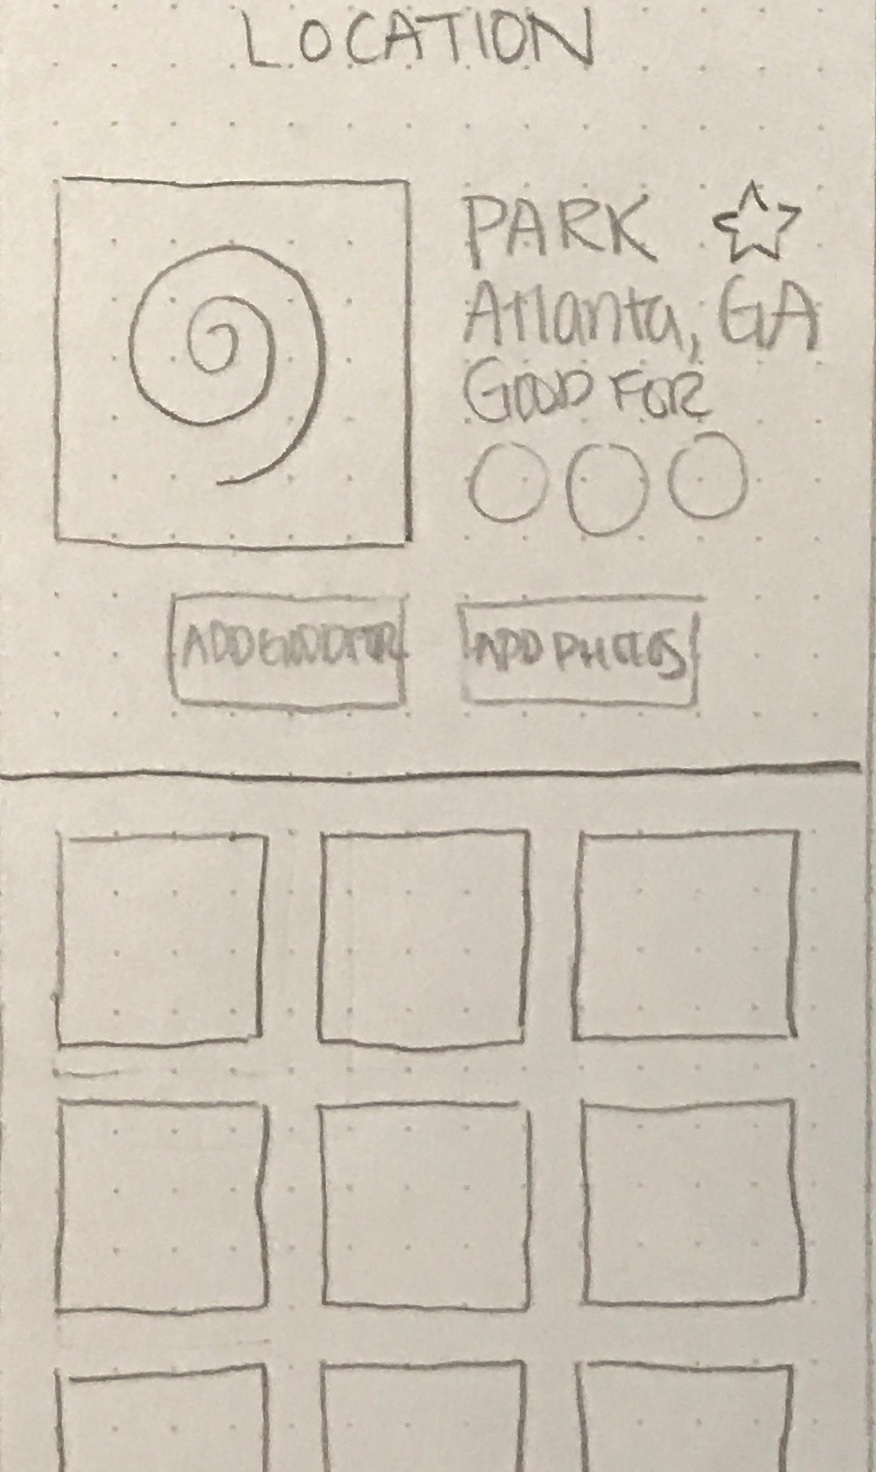 LOCATION
PARK
Atlanta, GA
GOOD FOR
ADD GOOD FOR
ADD PHOTOS